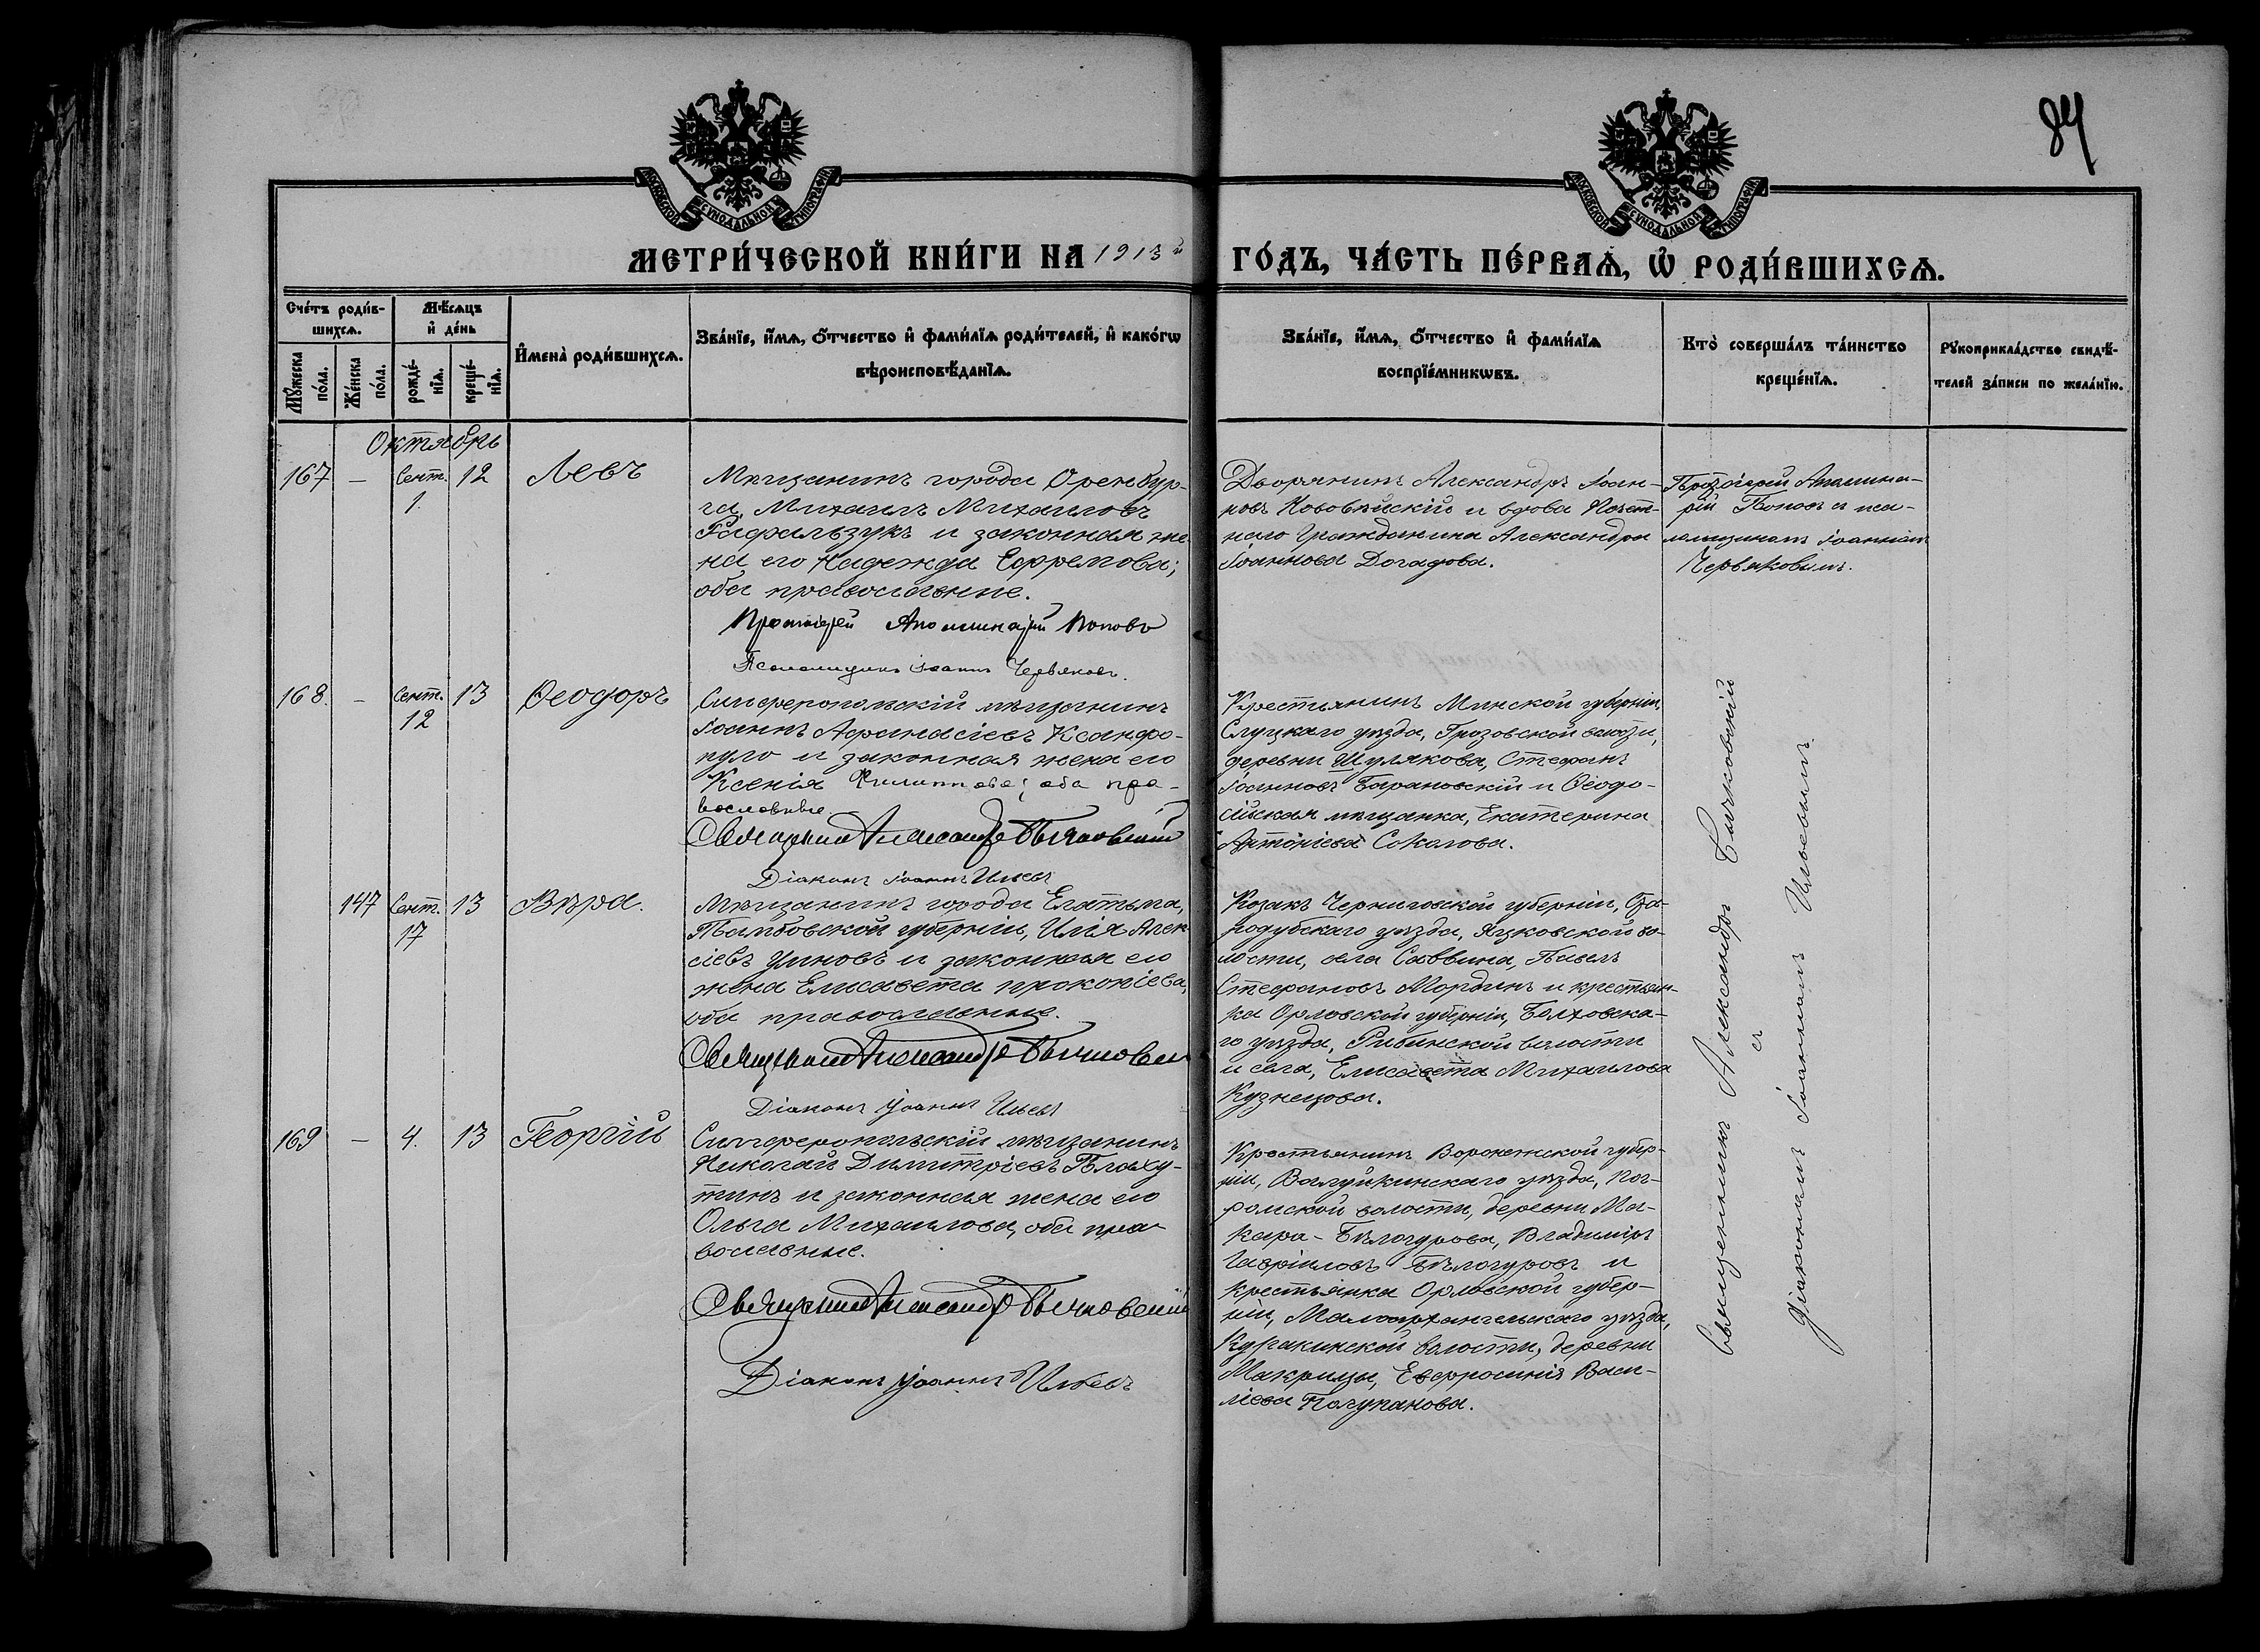 84
МОСКОВСКОЙ СѴНОДАЛЬНОЙ ТИПОГРАФІИ
МОСКОВСКОЙ СѴНОДАЛЬНОЙ ТИПОГРАФІИ
МЕТРИ́ЧЕСКОЙ КНИ́ГИ НА 1913й ГО́ДЪ, ЧА́СТЬ ПЕ́РВАѦ, Ѡ҆ РОДИ́ВШИХСѦ.
Сче́тъ роди́в-
шихсѧ.
Мѣ́сѧцъ
и҆ де́нь
Мꙋ́жеска
по́ла.
Же́нска
по́ла.
рожде́-
нїѧ.
креще́-
нїѧ.
И҆мена̀ роди́вшихсѧ.
Зва́нїе, и҆́мѧ, ѻ҆́тчество и҆ фами́лїѧ роди́телей, и҆ како́гѡ
вѣроисповѣ́данїѧ.
Зва́нїе, и҆́мѧ, ѻ҆́тчество и҆ фами́лїѧ
воспрїе́мникѡвъ.
Кто̀ соверша́лъ та́инство
креще́нїѧ.
Рꙋкоприкла́дство свидѣ́-
телей за́писи по жела́нїю.
Октябрь
167 – Сент. 12 Левъ
1.
Мѣщанинъ города Оренбур-
га, Михаилъ Михаиловъ
Рафальзукъ и законная же-
на его Надежда Ефремова;
оба православные.
Протоіерей Аполлинарій Поповъ
Псаломщикъ Іоаннъ Червяковъ.
Дворянинъ Александръ Іоан-
новъ Нововѣйскій и вдова Почет-
наго Гражданина Александра
Іоаннова Догадова.
Протоіерей Аполлина-
рій Поповъ съ пса-
ломщикомъ Іоанномъ
Червяковымъ.
168. – Сент. 13 Ѳеодоръ
12
Симферопольскій мѣщанинъ
Іоаннъ Афанасіевъ Ксанфо-
пуло и законная жена его
Ксенія Филиппова; оба пра-
вославные
Священникъ Александръ Бычковскій
Діаконъ Іоаннъ Ильевъ
Крестьянинъ Минской губерніи,
Слуцкаго уѣзда, Грозовской волости,
деревни Шулякова, Стефанъ
Іоанновъ Барановскій и Ѳеодо-
сійская мѣщанка, Екатерина
Антоніева Соколова.
147 Сент. 13 Вѣра.
17
Мѣщанинъ города Елатьма,
Тамбовской губерніи, Илія Алек-
сіевъ Умновъ и законная его
жена Елисавета Прокопіева,
оба православные.
Священникъ Александръ Бычковскій
Діаконъ Іоаннъ Ильевъ
Козакъ Черниговской губерніи, Ста-
родубскаго уѣзда, Яцковской во-
лости, села Саввина, Павелъ
Стефановъ Мординъ и крестьян-
ка Орловской губерніи, Болховска-
го уѣзда, Рыбинской волости
и села, Елисавета Михаилова
Кузнецова.
169 – 4. 13 Георгій
Симферопольскій мѣщанинъ
Николай Димитріевъ Плаху-
тинъ и законная жена его
Ольга Михаилова, оба пра-
вославные.
Священникъ Александръ Бычковскій
Діаконъ Іоаннъ Ильевъ
Крестьянинъ Воронежской губер-
ніи, Валуйкинскаго уѣзда, Пог-
ромской волости, деревни Ма-
кара-Бѣлогурова, Владиміръ
Гавріиловъ Бѣлогуровъ и
крестьянка Орловской губер-
ніи, Малоархангельскаго уѣзда,
Куракинской волости, деревни
Макрицы, Евфросинія Васи-
ліева Полупанова.
Священникъ Александръ Бычковскій
съ
діакономъ Іоанномъ Ильевымъ.